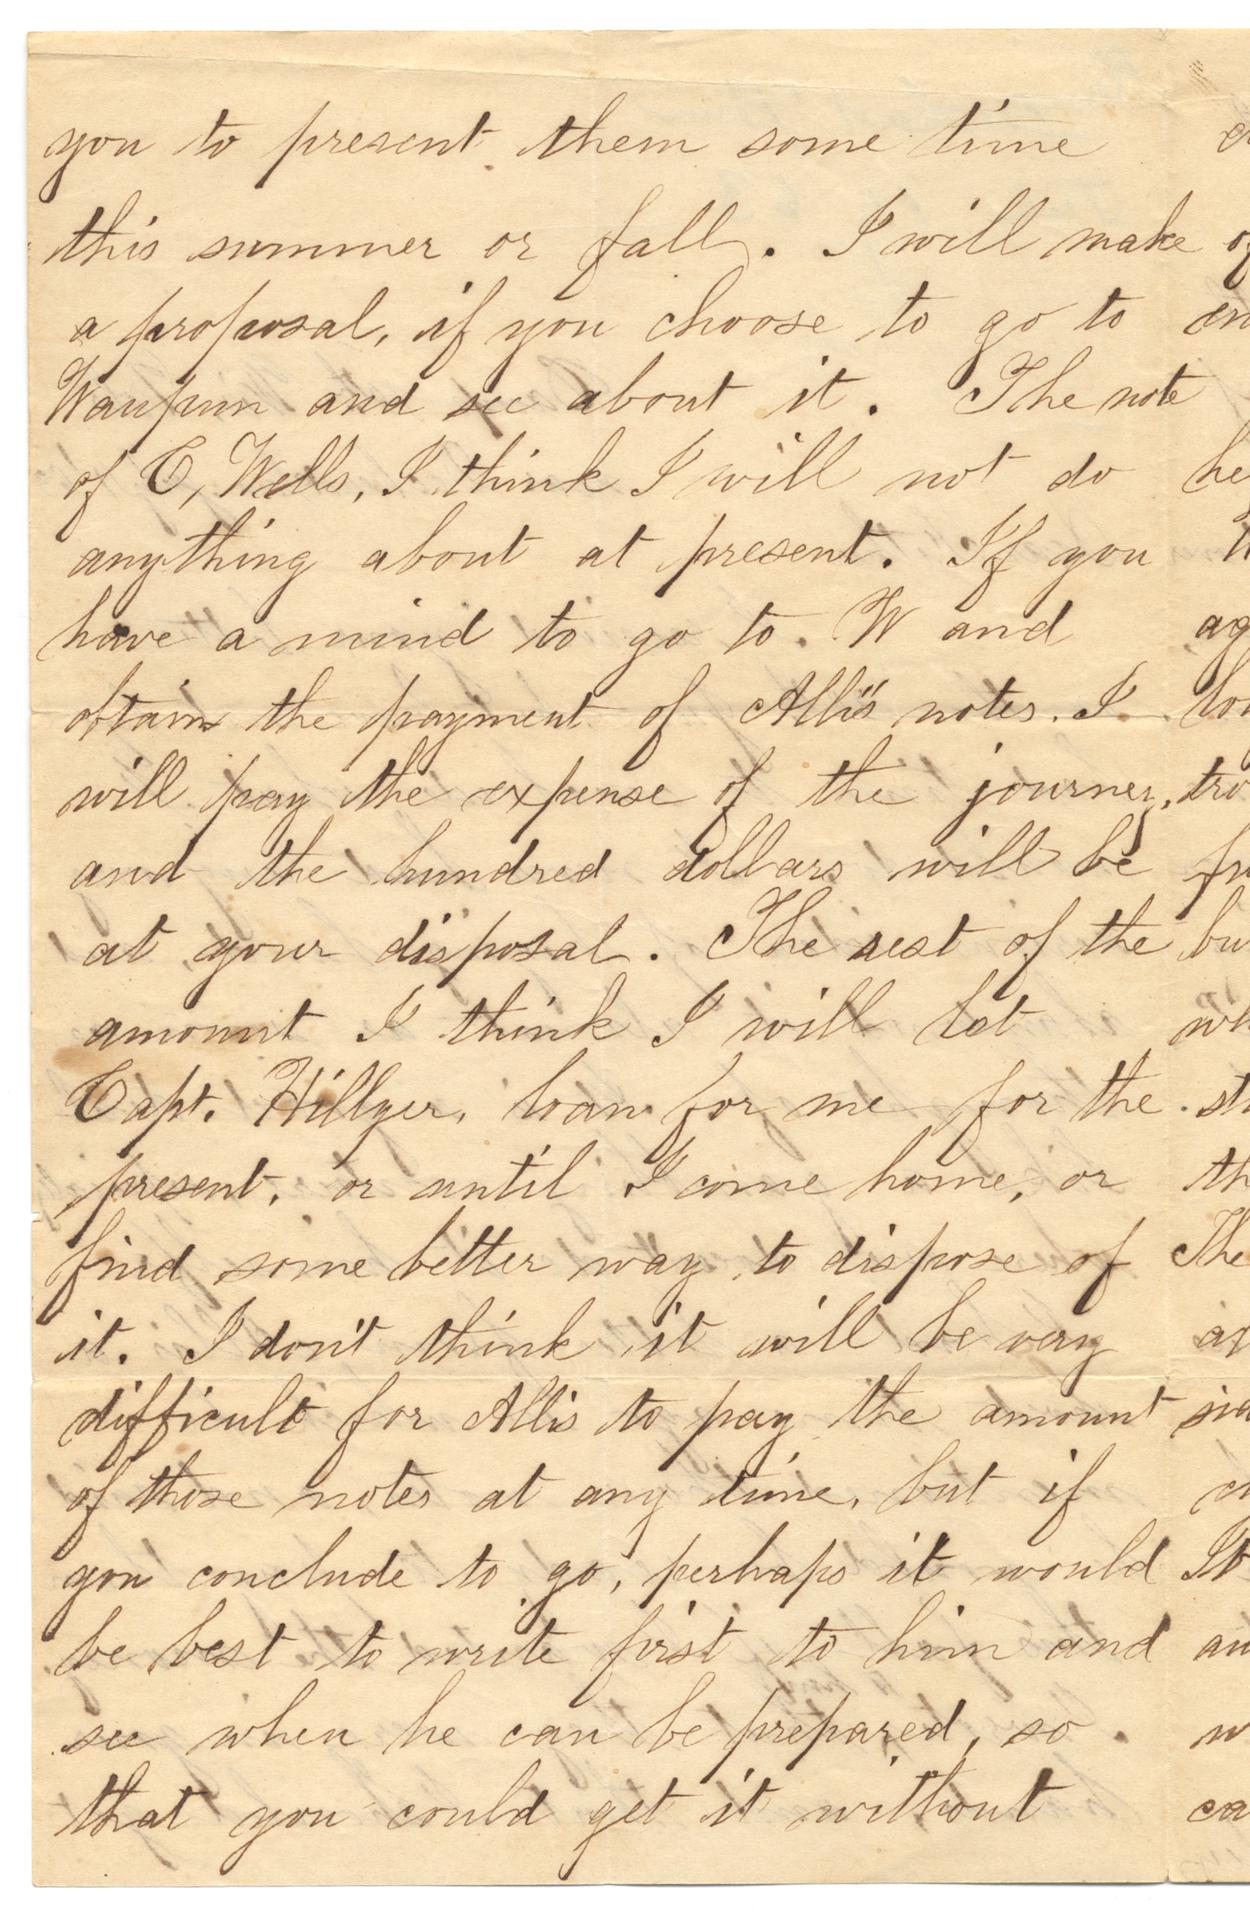 you to present them some time
this summer or fall. I will make
a proposal, if you choose to go to
Waupun and see about it. The note
of C, Wells, I think I will not do
anything about at present. If you
have a mind to go to. W and
obtain the payment of Allis' notes. I
will pay the expense of the journey,
and the hundred dollars will be
at your disposal. The rest of the
amount I think I will let
Capt. Hillyer, loan for me for the
present, or until I come home, or
find some better way to dispose of
it. I don't think it will be very
difficult for Allis to pay the amount
of those notes at any time, but if
you conclude to go, perhaps it would
be best to write first to him and
see when he can be prepared, so
that you could get it without
he
ag
tro
bu
wh
th
The
It
w
ca